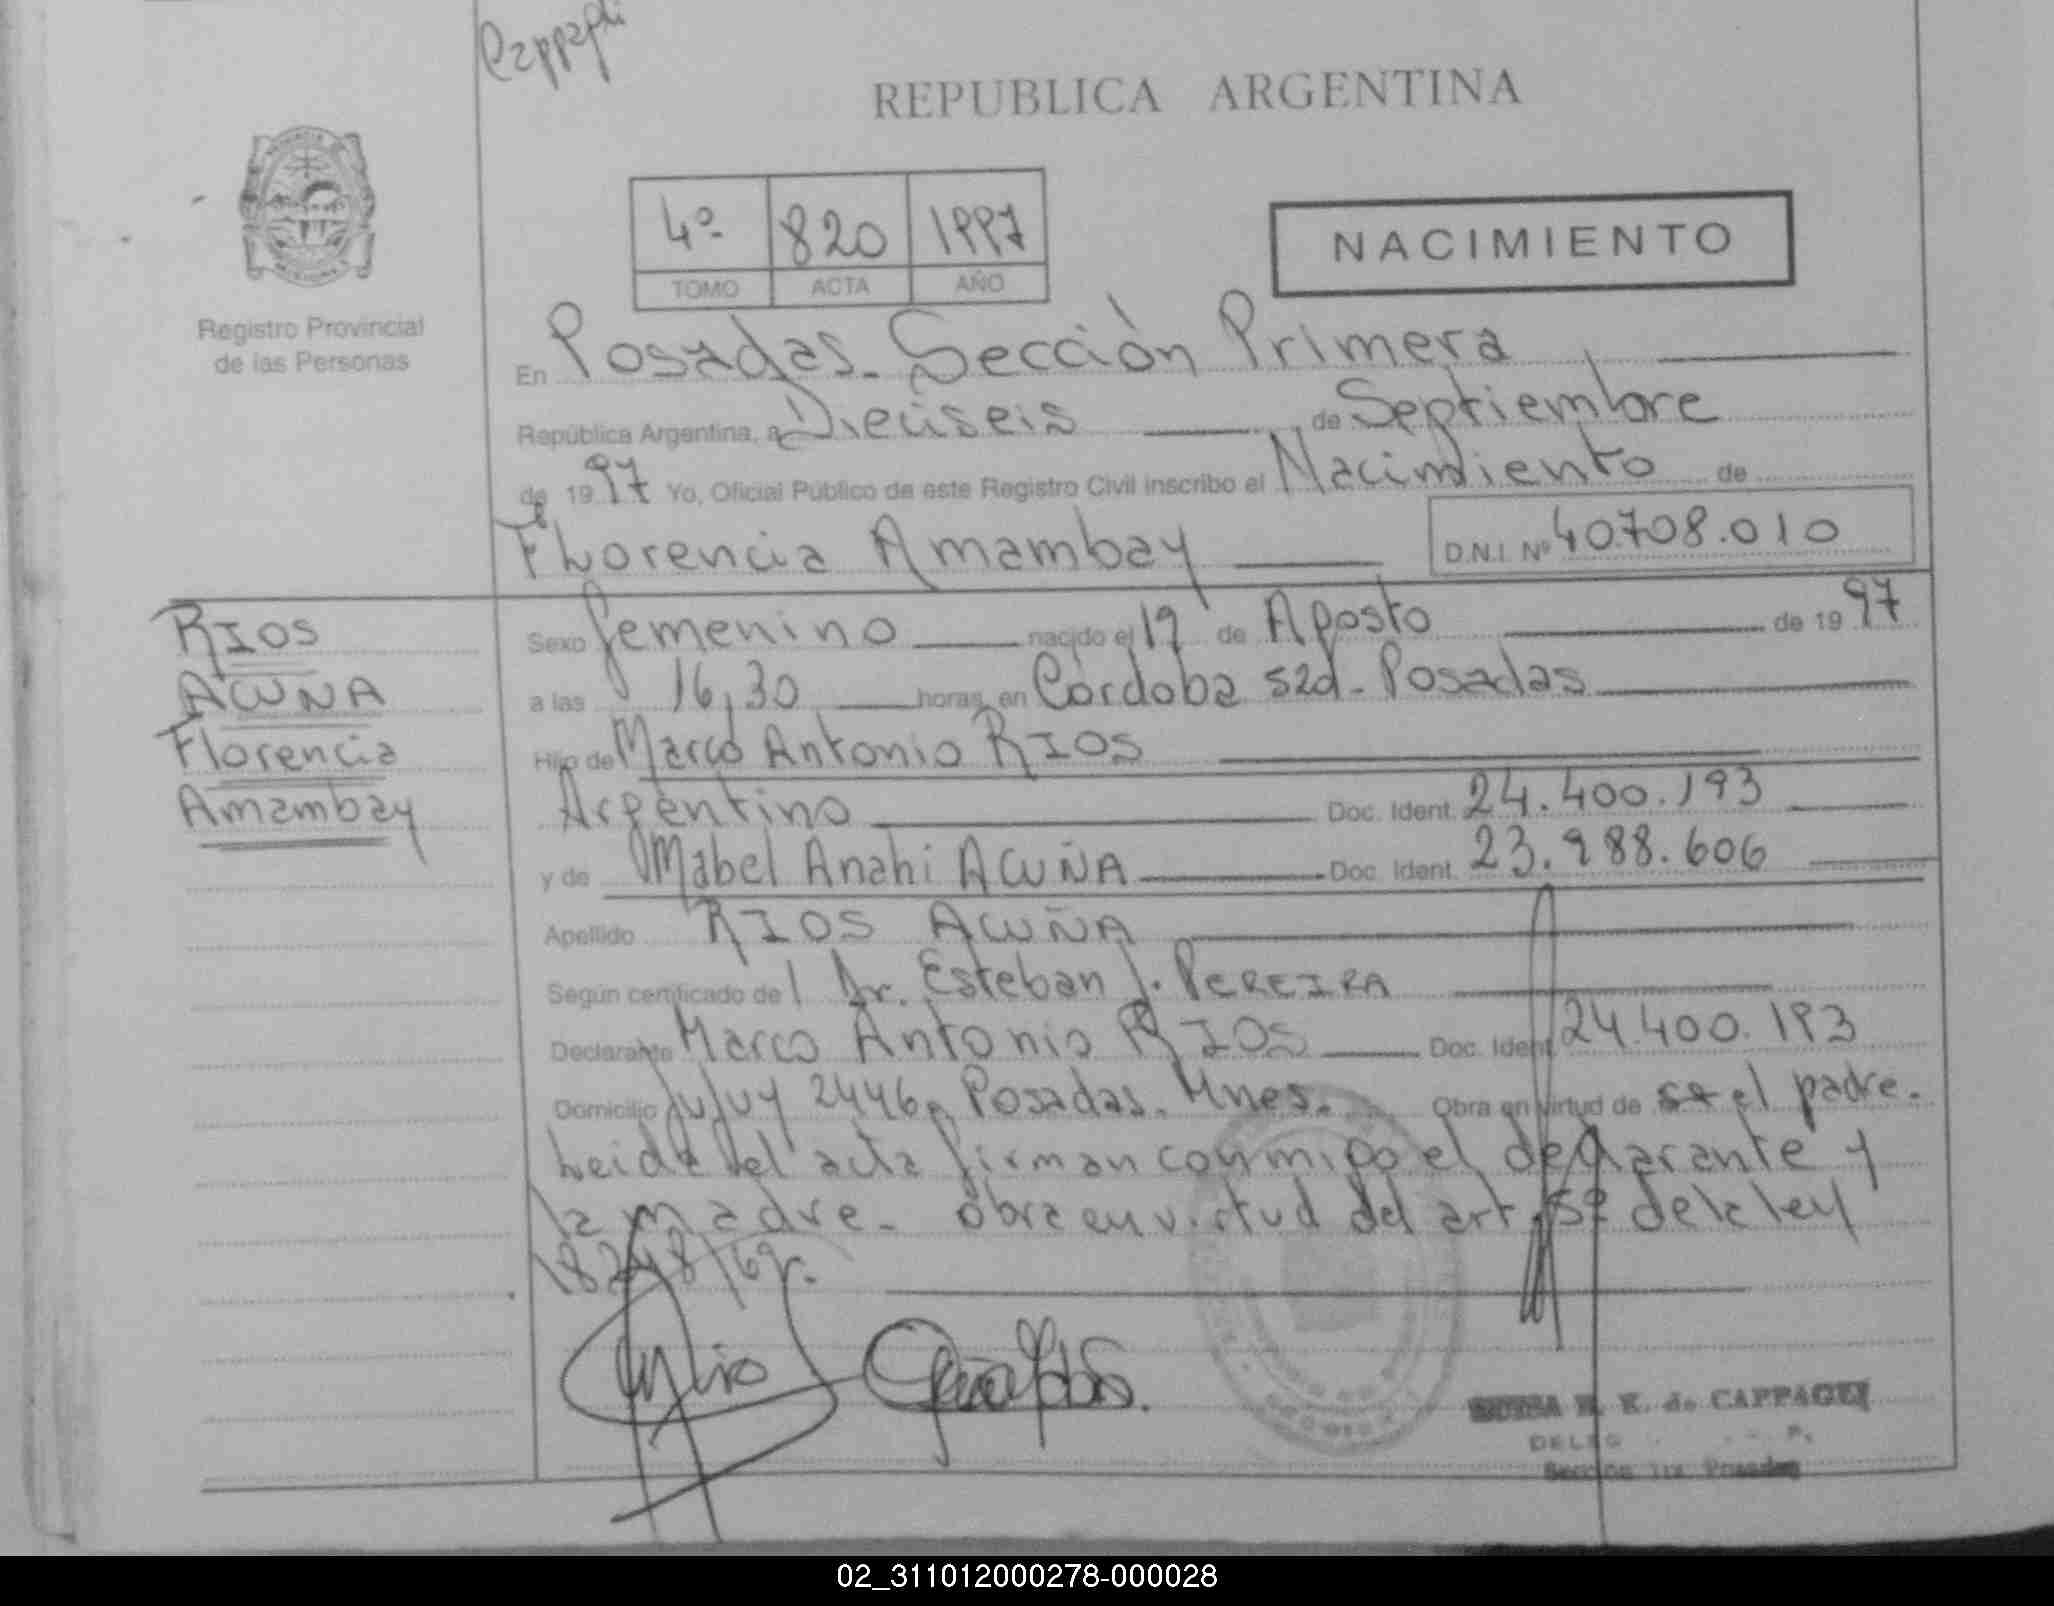 REPUBLICA ARGENTINA
4º 820 1997
TOMO ACTA AÑO
NACIMIENTO
Registro Provincial
de las Personas
En Posadas. Sección Primera
República Argentina, a Dieciseis de Septiembre
de 1997 Yo, Oficial Público de este Registro Civil inscribo el Nacimiento de
Florencia Amambay D.N.I. Nº 40.708.010
RIOS
ACUÑA
Florencia
Amambay
Sexo femenino nacido el 19 de Agosto de 1997
a las 16,30 horas, en Córdoba s2d. Posadas
Hijo de Marco Antonio RIOS
Argentino Doc. Ident. 24.400.193
y de Mabel Anahi ACUÑA Doc. Ident. 23.988.606
Apellido RIOS ACUÑA
Según certificado del Dr. Esteban J. PEREIRA
Declarante Marco Antonio RIOS Doc. Ident. 24.400.193
Domicilio Jujuy 2446, Posadas. Mnes. Obra en virtud de el padre.
Leida el acta firman conmigo el declarante y
la madre. Obra en virtud del art. 5º de la ley
18248/69.
K. de CAPPAGLI
Sección 1ra Posadas
02_311012000278-000028